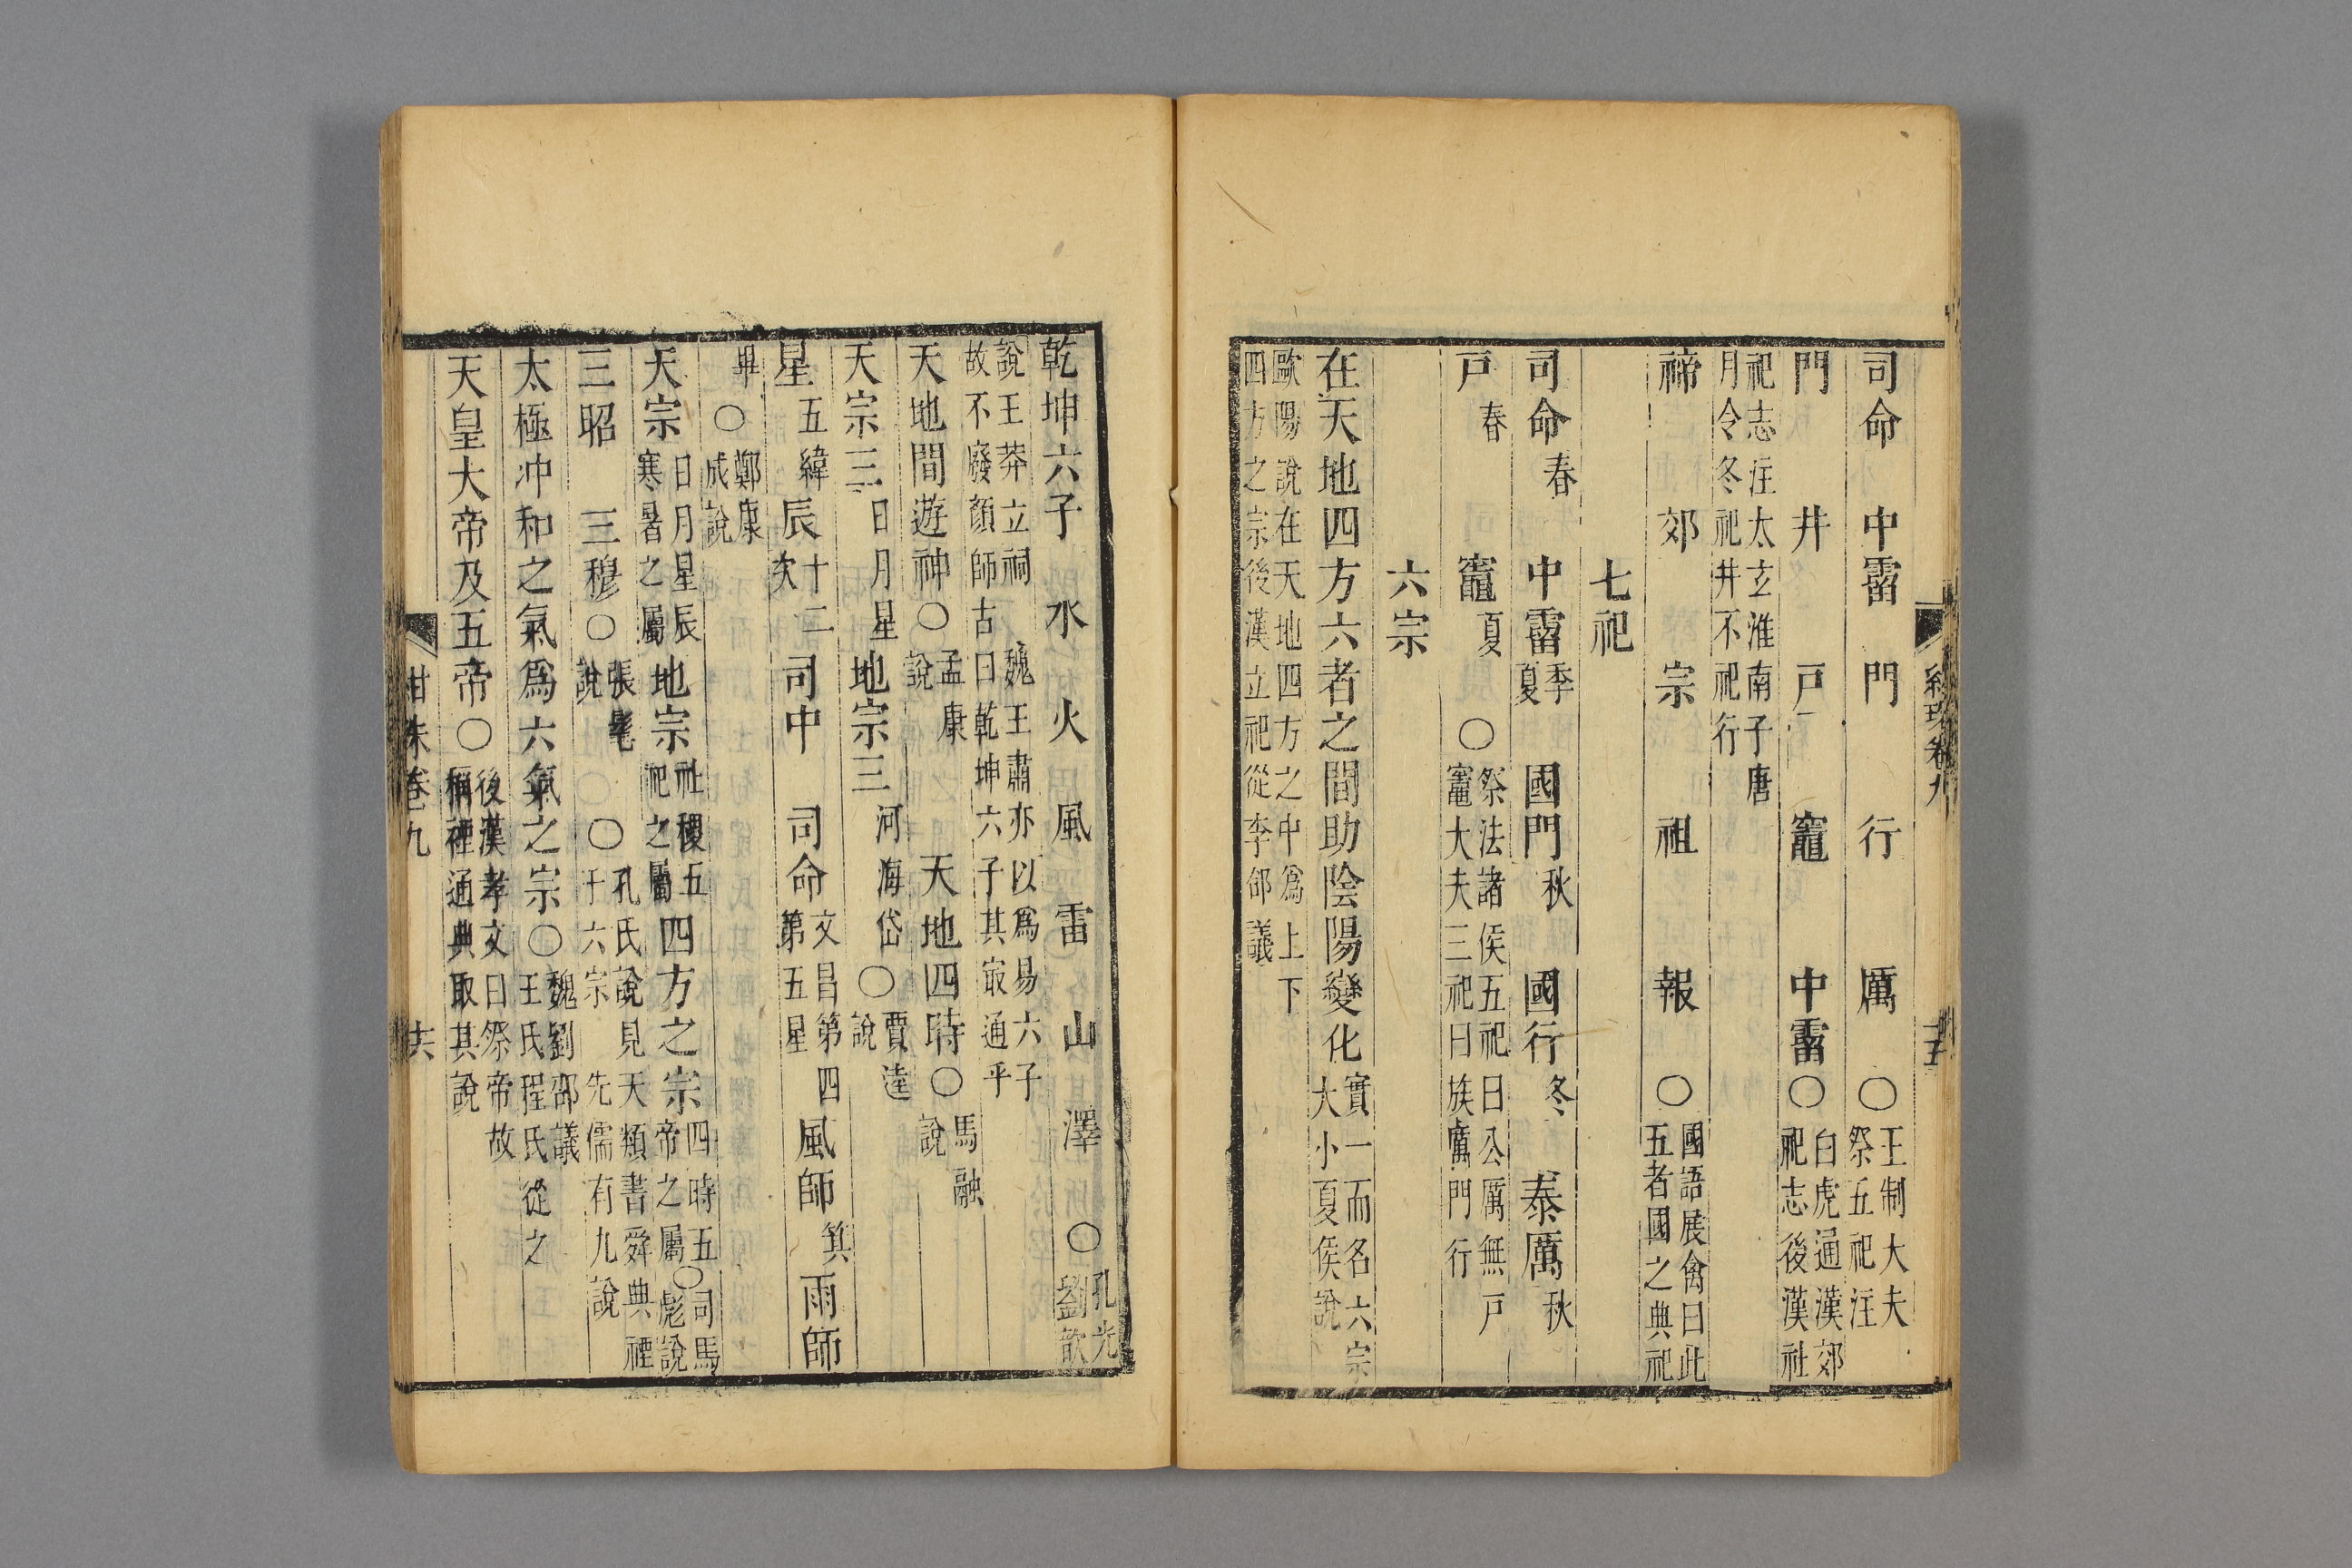 司命　中霤　門　行　厲　○王制大夫祭五祀注
門　井　戸　竈　中霤○白虎通漢郊祀志後漢社
祀志注太玄淮南子唐月令冬祀井不祀行
禘　郊　宗　祖　報　○國語展禽曰此五者國之典祀
七祀
司命春　中霤季夏　國門秋　國行冬　泰厲秋
戸春　竈夏　○祭法諸侯五祀曰公厲無戸竈大夫三祀曰族厲門行
六宗
在天地四方六者之間助陰陽變化實一而名六宗大小夏侯說
歐陽說在天地四方之中爲上下四方之宗後漢立祀從李郃議
乾坤六子　水　火　風　雷　山　澤　○孔光劉歆
說王莽立祠　魏王肅亦以爲易六子故不廢顏師古曰乾坤六子其最通乎
天地間遊神○孟康說　天地四時○馬融說
天宗三日月星　地宗三河海岱○賈逵說
星五緯　辰十二次　司中　司命文昌第四第五星　風師箕　雨師
畢○鄭康成說
天宗日月星辰寒暑之屬　地宗社稷五祀之屬　四方之宗四時五帝之屬○司馬彪說
三昭　三穆○張髦說　○孔氏說見天類書舜典禋于六宗　先儒有九說
太極冲和之氣爲六氣之宗○魏劉邵議王氏程氏從之
天皇大帝及五帝○後漢孝文曰祭帝故稱禋通典取其說
卷九